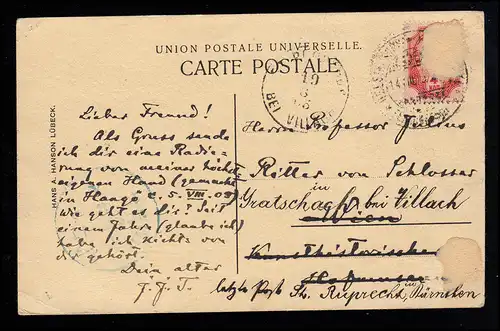 UNION POSTALE UNIVERSELLE.
CARTE POSTALE.
HANS A. HANSON LÜBECK.
BEI VILLACH
19
Lieber Freund!
Als Gruss sende
ich dir eine Radie-
rung von meiner höchst
eigenen Hand (gemacht
in Haage e. 5. VIII. 03)
Wie geht es dir? Seit
einem Jahre (glaube ich)
habe ich Nichts von
dir gehört.
Dein alter
J. J. T.
Herrn Professor Julius
Ritter von Schlosser
in
Gratschach bei Villach
Wien
Kunsthistorisches
Hofmuseum
letzte Post St. Ruprecht, in Kärnthen